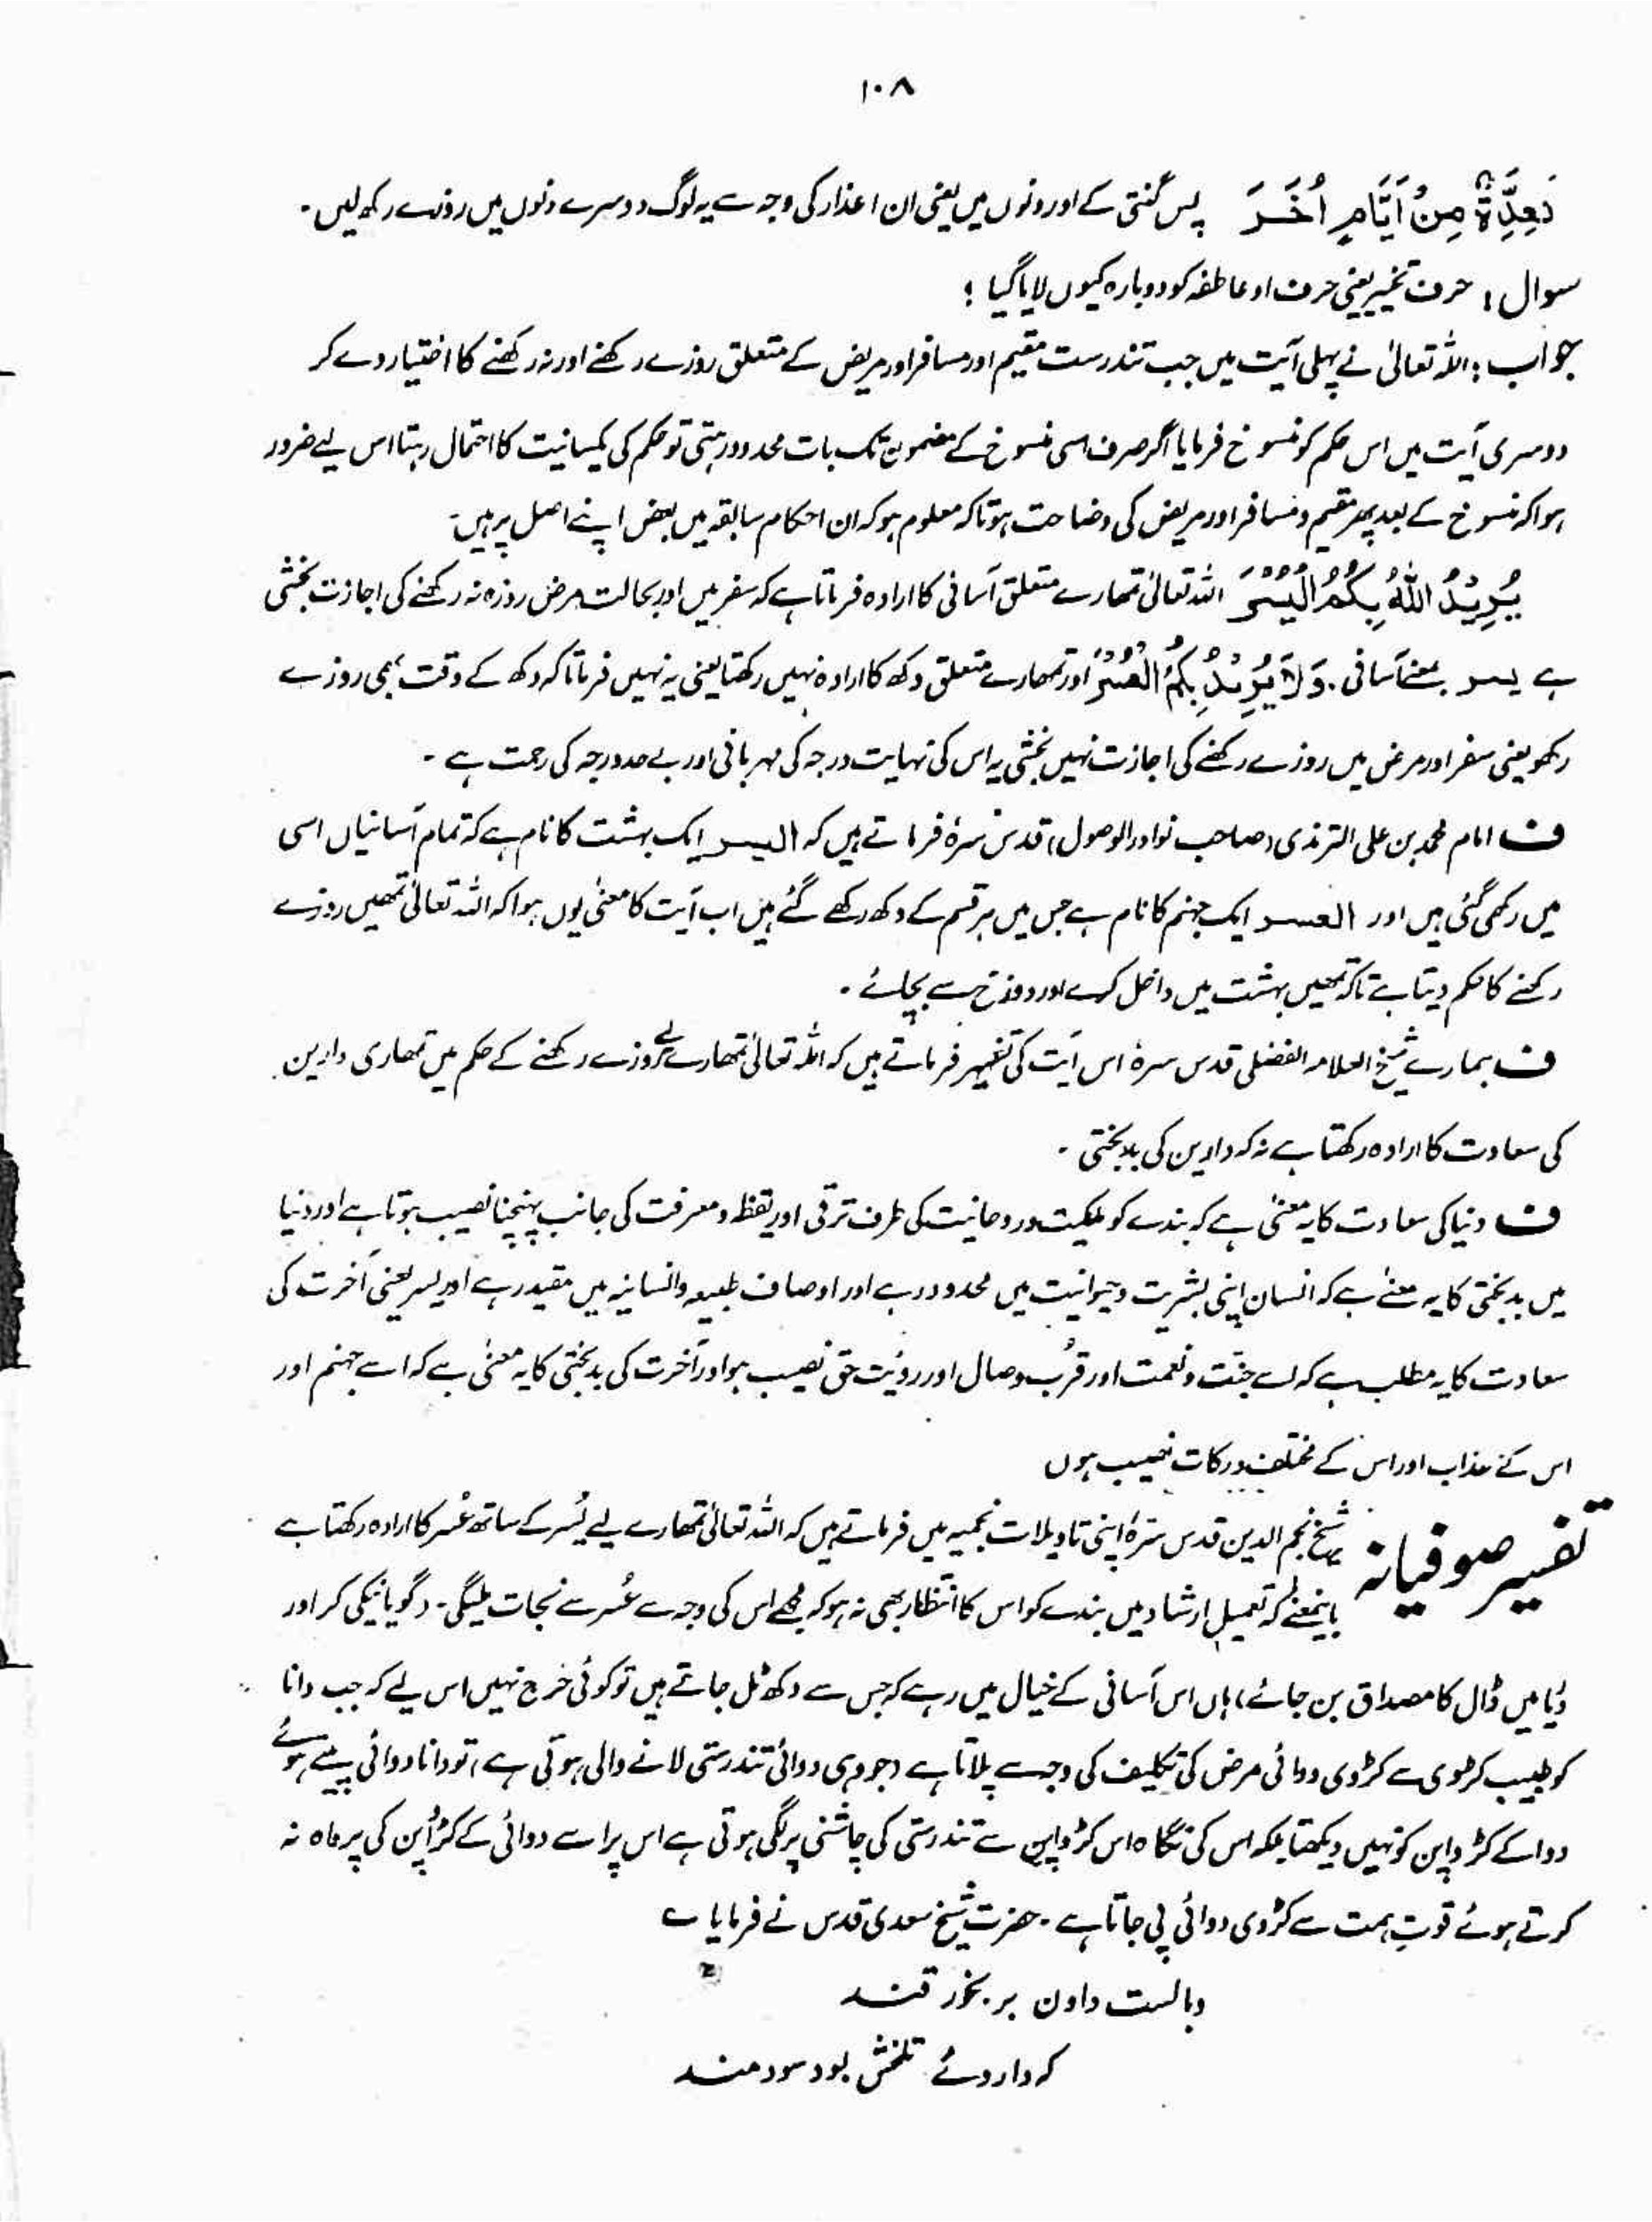 ۱۰۸
فَعِدَّةٌ مِنْ اَيَّامٍ اُخَرَ پس گنتی کے اور دنوں میں یعنی ان اعذار کی وجہ سے یہ لوگ دوسرے دنوں میں روزے رکھ لیں۔
سوال؛ حرف تخییر یعنی حرف او عاطفہ کو دوبارہ کیوں لایا گیا ؛
جواب : اللہ تعالیٰ نے پہلی آیت میں جب تندرست مقیم اور مسافر اور مریض کے متعلق روزے رکھنے اور نہ رکھنے کا اختیار دے کر
دوسری آیت میں اس حکم کو منسوخ فرمایا اگر صرف اسی منسوخ کے مضمون تک بات محدود رہتی تو حکم کی یکسانیت کا احتمال رہتا اس لیے ضرور
ہوا کہ منسوخ کے بعد پھر مقیم و مسافر اور مریض کی وضاحت ہو تاکہ معلوم ہو کہ ان احکام سابقہ میں بعض اپنے اصل پر ہیں۔
يُرِيْدُ اللّٰهُ بِكُمُ الْيُسْرَ اللہ تعالیٰ تمھارے متعلق آسانی کا ارادہ فرماتا ہے کہ سفر میں اور بحالت مرض روزہ نہ رکھنے کی اجازت بخشی
ہے یسر بمعنے آسانی . وَلَا يُرِيْدُ بِكُمُ الْعُسْرَ اور تمھارے متعلق دکھ کا ارادہ نہیں رکھتا یعنی یہ نہیں فرماتا کہ دکھ کے وقت بھی روزے
رکھو یعنی سفر اور مرض میں روزے رکھنے کی اجازت نہیں بخشی یہ اس کی نہایت درجہ کی مہربانی اور بے حد درجہ کی رحمت ہے ۔
ف امام محمد بن علی الترمذی (صاحب نوادر الوصول) قدس سرہٗ فرماتے ہیں کہ الیسر ایک بہشت کا نام ہے کہ تمام آسانیاں اسی
میں رکھی گئی ہیں اور العسر ایک جہنم کا نام ہے جس میں ہر قسم کے دکھ رکھے گئے ہیں اب آیت کا معنیٰ یوں ہوا کہ اللہ تعالیٰ تمھیں روزے
رکھنے کا حکم دیتا ہے تاکہ تمھیں بہشت میں داخل کرے اور دوزخ سے بچائے ۔
ف ہمارے شیخ العلامہ الفضلی قدس سرہٗ اس آیت کی تفسیر فرماتے ہیں کہ اللہ تعالیٰ تمھارے لیے روزے رکھنے کے حکم میں تمھاری دارین
کی سعادت کا ارادہ رکھتا ہے نہ کہ دارین کی بدبختی ۔
ف دنیا کی سعادت کا یہ معنیٰ ہے کہ بندے کو ملکیت و روحانیت کی طرف ترقی اور تیقظ و معرفت کی جانب پہنچنا نصیب ہوتا ہے اور دنیا
میں بدبختی کا یہ معنے ہے کہ انسان اپنی بشریت و حیوانیت میں محدود رہے اور اوصاف طبیعہ و انسانیہ میں مقید رہے اور یسر یعنی آخرت کی
سعادت کا یہ مطلب ہے کہ اسے جنّت و نعمت اور قرُب وصال اور روئیت حق نصیب ہو اور آخرت کی بدبختی کا یہ معنیٰ ہے کہ اسے جہنم اور
اس کے عذاب اور اس کے مختلف درکات نصیب ہوں
تفسیر صوفیانہ
شیخ نجم الدین قدس سترہٗ اپنی تاویلات نجمیہ میں فرماتے ہیں کہ اللہ تعالیٰ تمھارے لیے یُسر کے ساتھ عُسر کا ارادہ رکھتا ہے
باینمعنےٰ کہ تعمیل ارشاد میں بندے کو اس کا انتظار بھی نہ ہو کہ مجھے اس کی وجہ سے عُسر سے نجات ملیگی ۔ (گویا نیکی کر اور
دریا میں ڈال کا مصداق بن جائے) ہاں اس آسانی کے خیال میں رہے کہ جس سے دکھ ٹل جاتے ہیں تو کوئی حرج نہیں اس لیے کہ جب دانا
کو طبیب کڑوی سے کڑوی دوائی مرض کی تکلیف کی وجہ سے پلاتا ہے (جو وہی دوائی تندرستی لانے والی ہوتی ہے) تو دانا دوائی پیتے ہوئے
دوا کے کڑواپن کو نہیں دیکھتا بلکہ اس کی نگاہ اس کڑواپن سے تندرستی کی چاشنی پر لگی ہوتی ہے اس پر اسے دوائی کے کڑوُاپن کی پرواہ نہ
کرتے ہوئے قوتِ ہمت سے کڑوی دوائی پی جاتا ہے ۔ حضرت شیخ سعدی قدس نے فرمایا ے
وبالست دادن برنجور قند
کہ داروئے تلخش بود سودمند